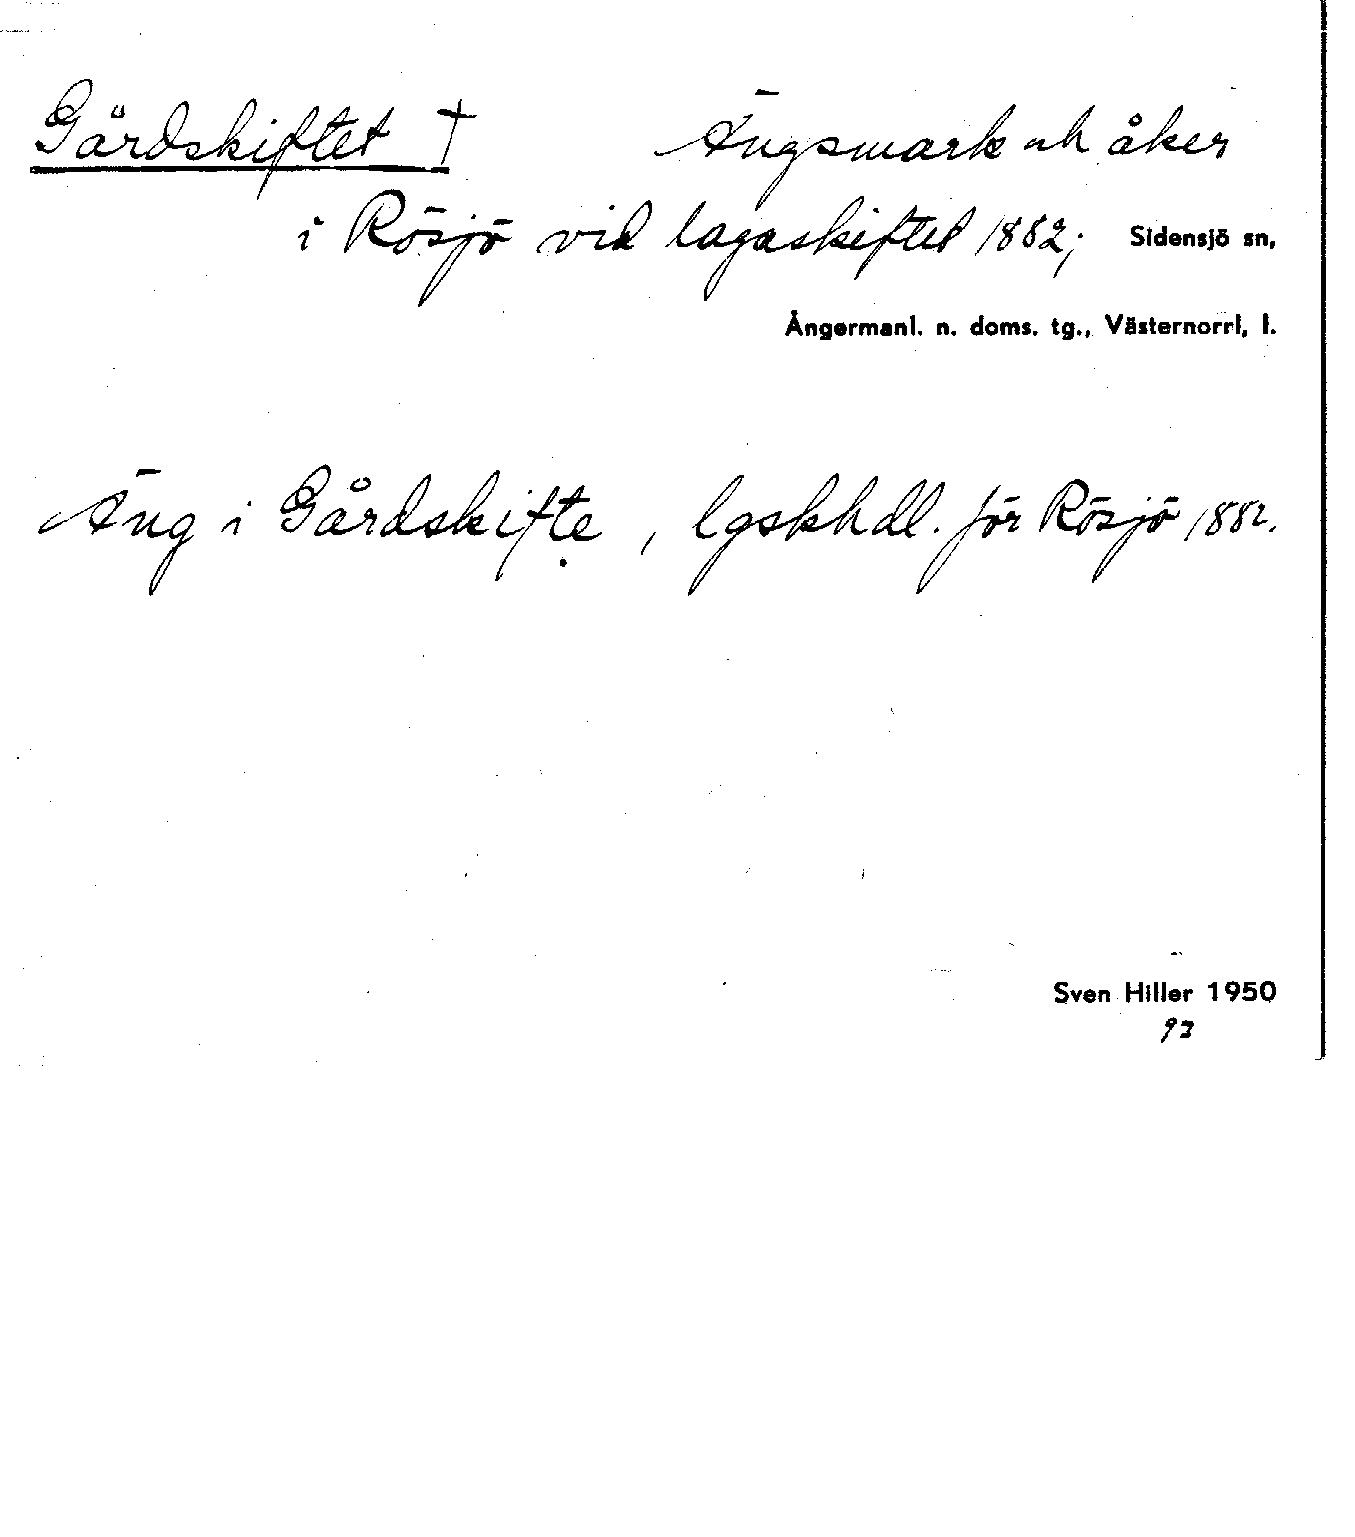 Gårdskiftet † Ängsmark och åker
i Rösjö vid lagaskiftet 1882; Sidensjö sn,
Ångermanl. n. doms. tg., Västernorrl, l.
Äng i Gårdskifte, lgskhdl. för Rösjö 1882.
Sven Hiller 1950